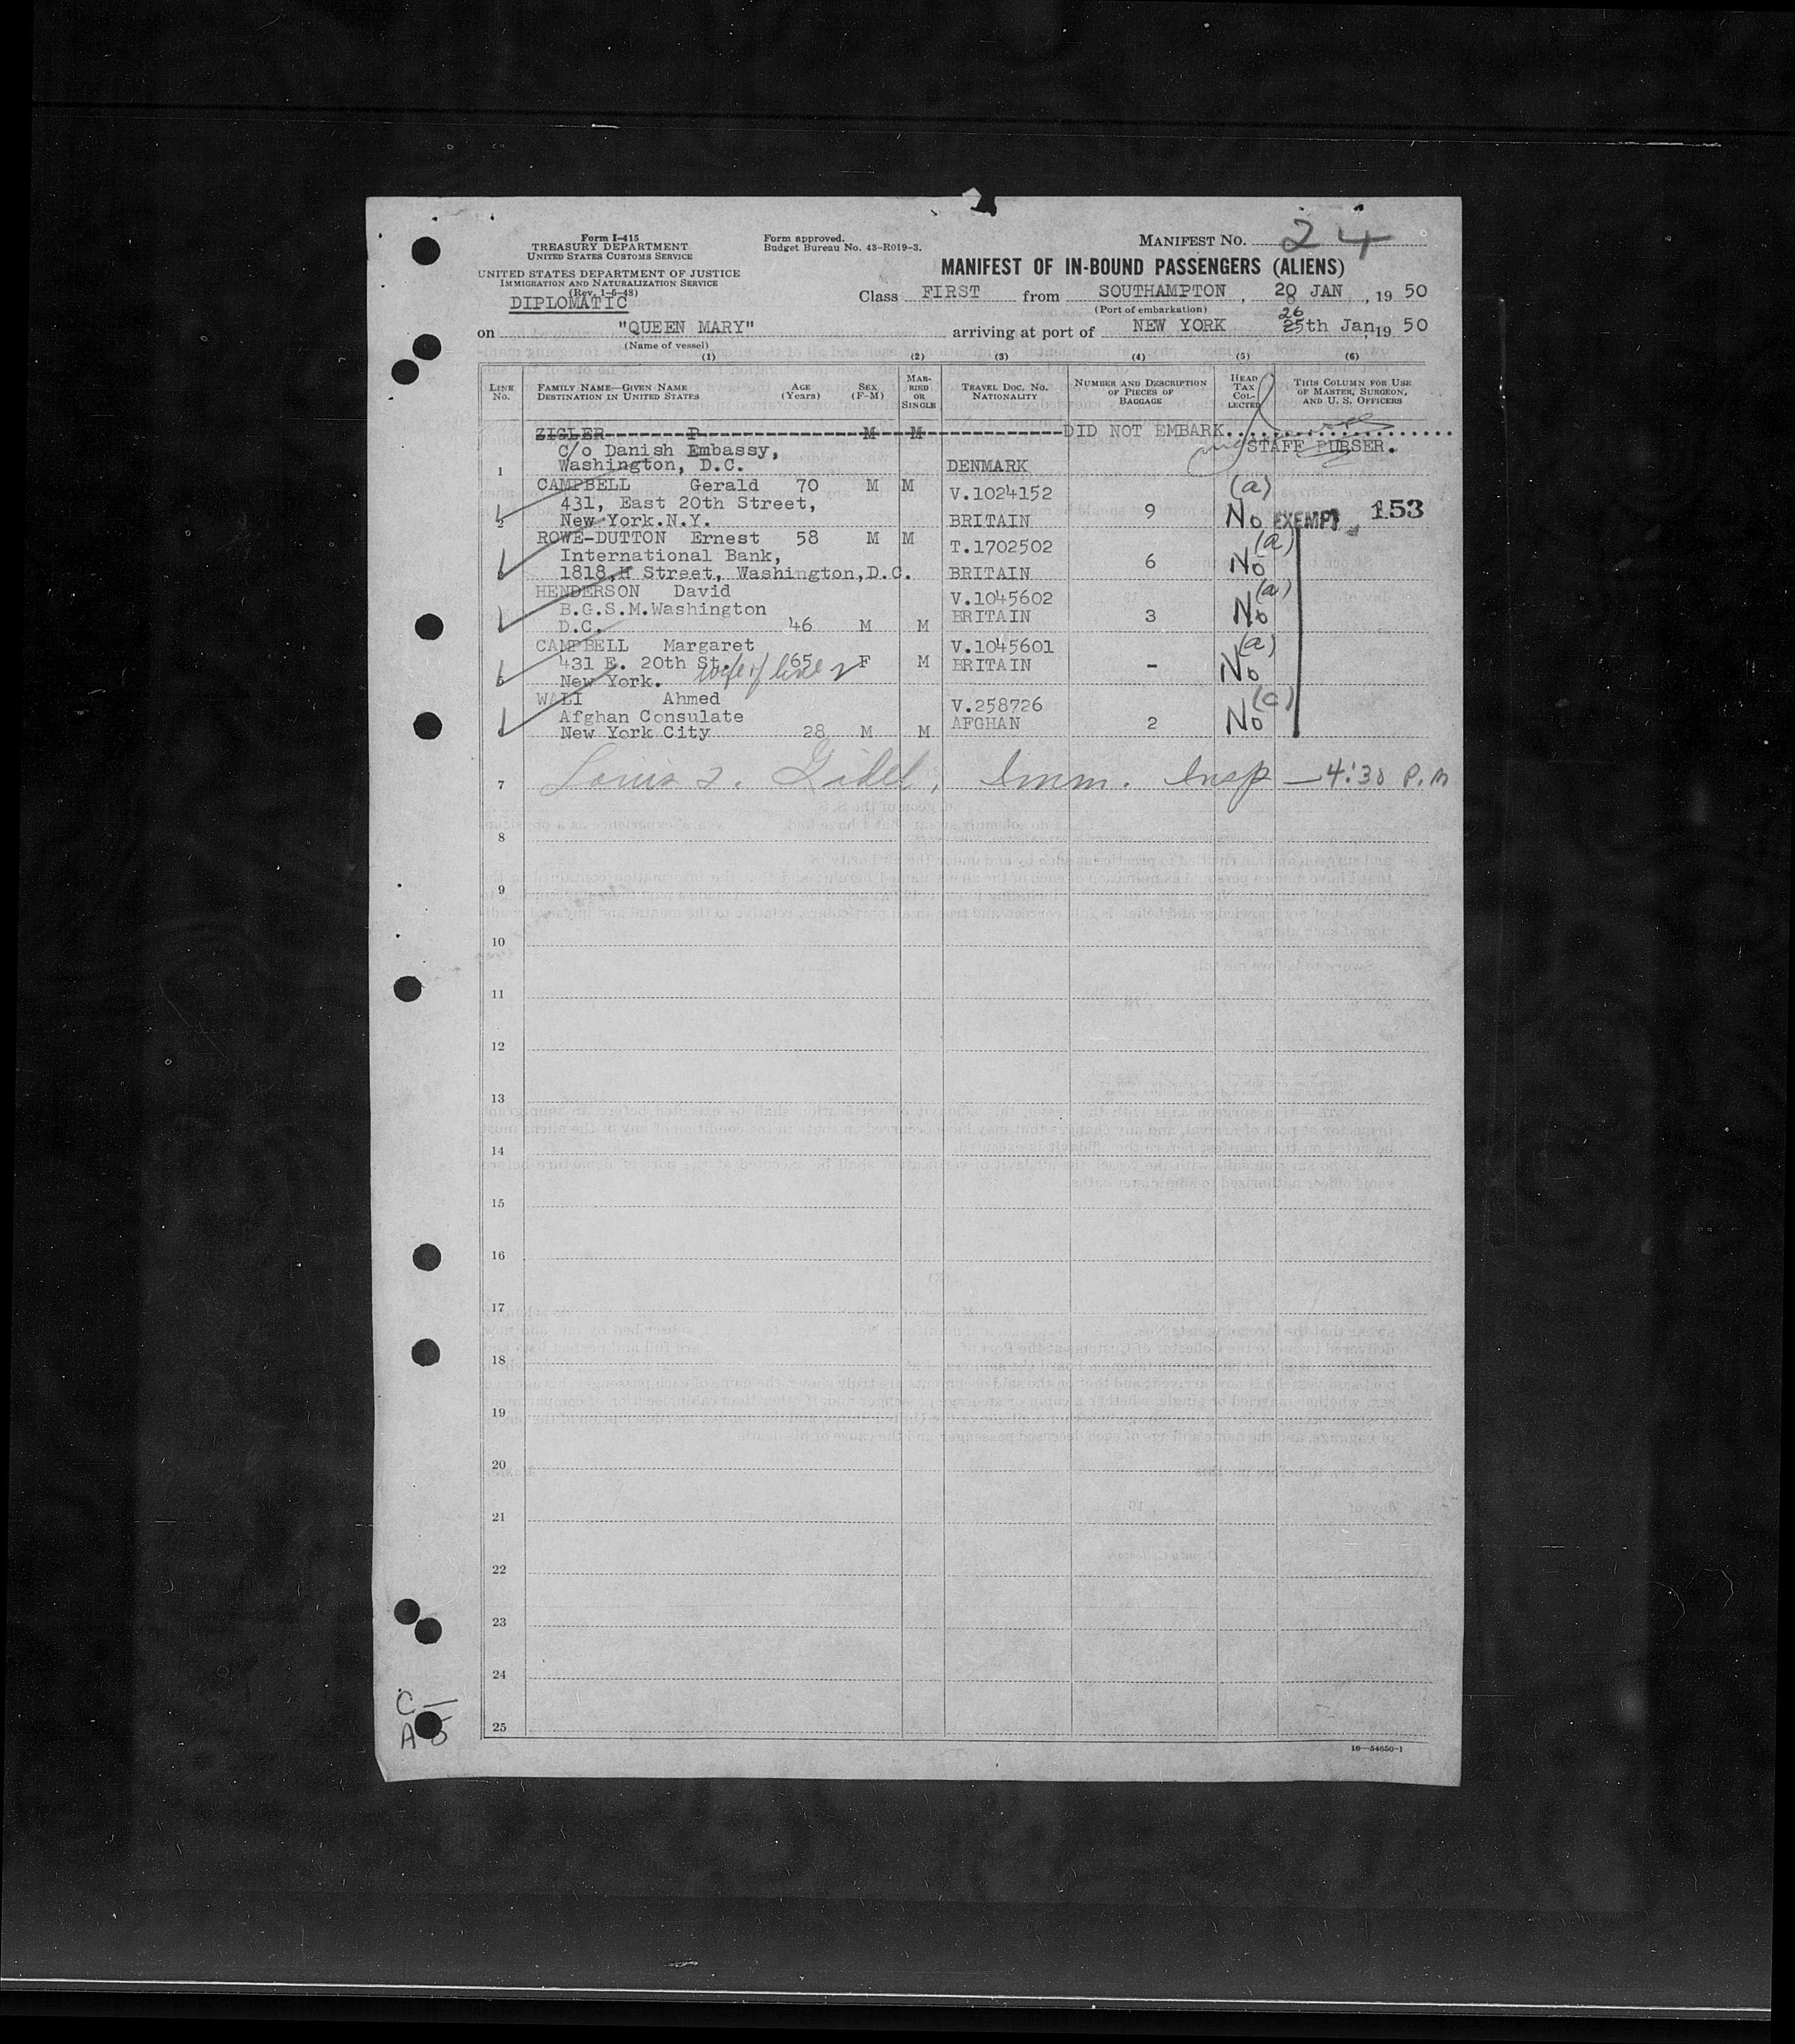 Form I-415
TREASURY DEPARTMENT
UNITED STATES CUSTOMS SERVICE
UNITED STATES DEPARTMENT OF JUSTICE
IMMIGRATION AND NATURALIZATION SERVICE
(Rev. 1-5-48)
DIPLOMATIC
Form approved.
Budget Bureau No. 43-R019-3.
MANIFEST NO. 24
MANIFEST OF IN-BOUND PASSENGERS (ALIENS)
Class FIRST from SOUTHAMPTON, 20 JAN, 19 50
(Port of embarkation)
26
on "QUEEN MARY" arriving at port of NEW YORK 25th Jan, 19 50
(Name of vessel)
(1) (2) (3) (4) (5) (6)
LINE NO.
FAMILY NAME—GIVEN NAME
DESTINATION IN UNITED STATES
AGE (Years)
SEX (F-M)
MARRIED OR SINGLE
TRAVEL DOC. NO. NATIONALITY
NUMBER AND DESCRIPTION OF PIECES OF BAGGAGE
HEAD TAX COLLECTED
THIS COLUMN FOR USE OF MASTER, SURGEON, AND U. S. OFFICERS
ZIGLER P M M DID NOT EMBARK
C/o Danish Embassy, STAFF PURSER.
1 Washington, D.C. DENMARK
CAMPBELL Gerald 70 M M V.1024152 (a)
431, East 20th Street,
2 New York.N.Y. BRITAIN 9 No EXEMPT 153
ROWE-DUTTON Ernest 58 M M T.1702502 (a)
International Bank, 6 No
1818,H Street, Washington,D.C. BRITAIN
HENDERSON David V.1045602 (a)
B.G.S.M.Washington BRITAIN 3 No
D.C. 46 M M
CAMPBELL Margaret V.1045601 (a)
431 E. 20th St. 65 F M BRITAIN - No
New York. wife of line 2
WALI Ahmed V.258726 (c)
Afghan Consulate AFGHAN 2 No
New York City 28 M M
7 Louis Gidel, Imm. Insp — 4:30 P.M
8
9
10
11
12
13
14
15
16
17
18
19
20
21
22
23
24
25
C —
A 5
16—54650-1